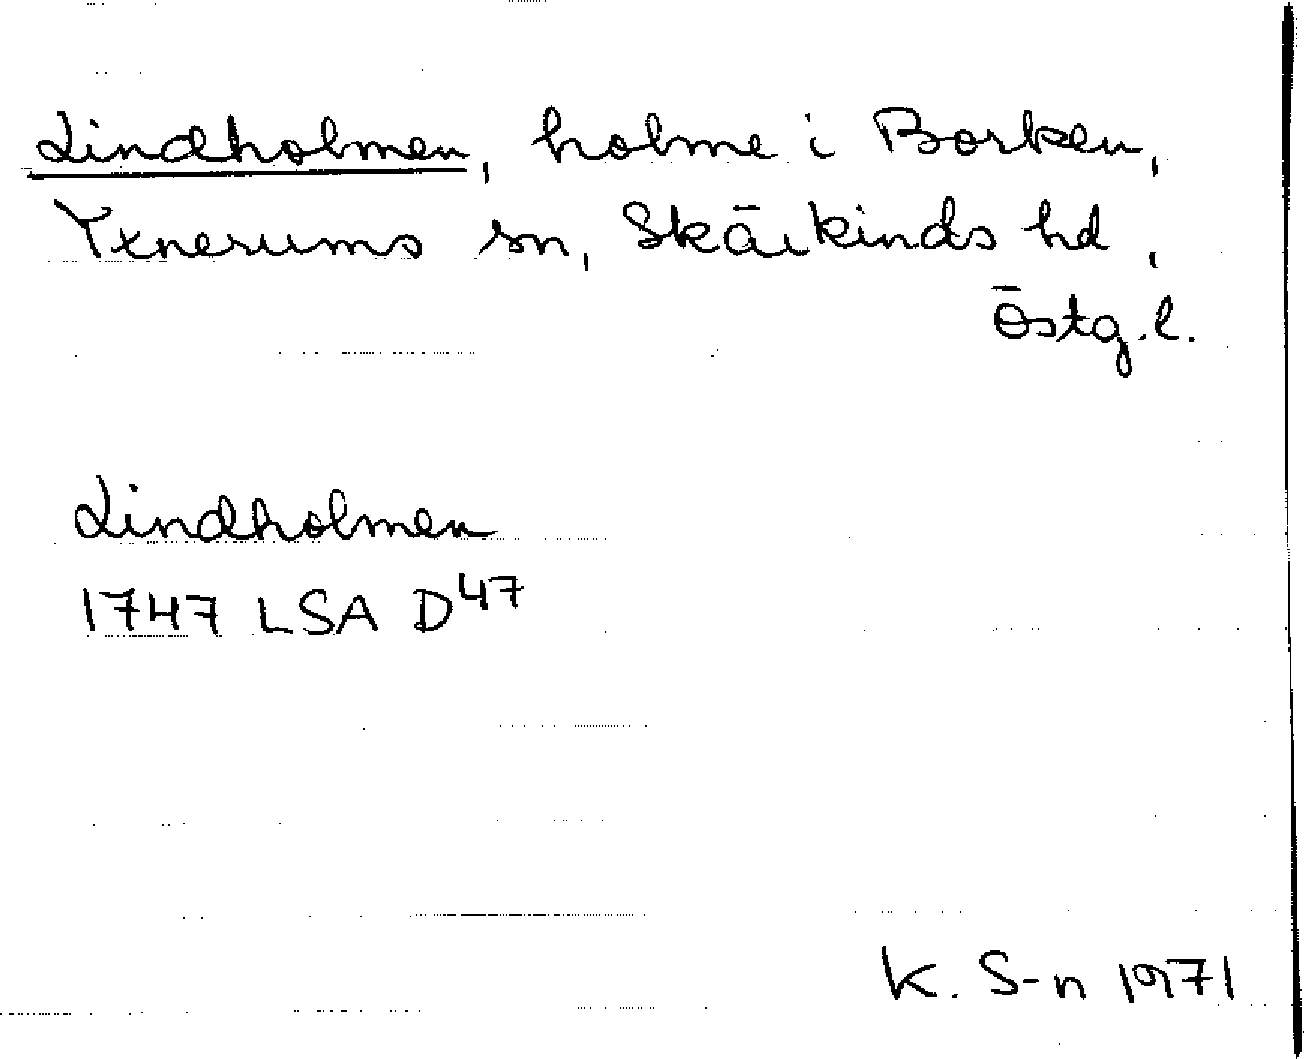 Lindholmen, holme i Borken,
Yxnerums sn, Skärkinds hd,
Östg.l.
Lindholmen
1747 LSA D47
K. S-n 1971